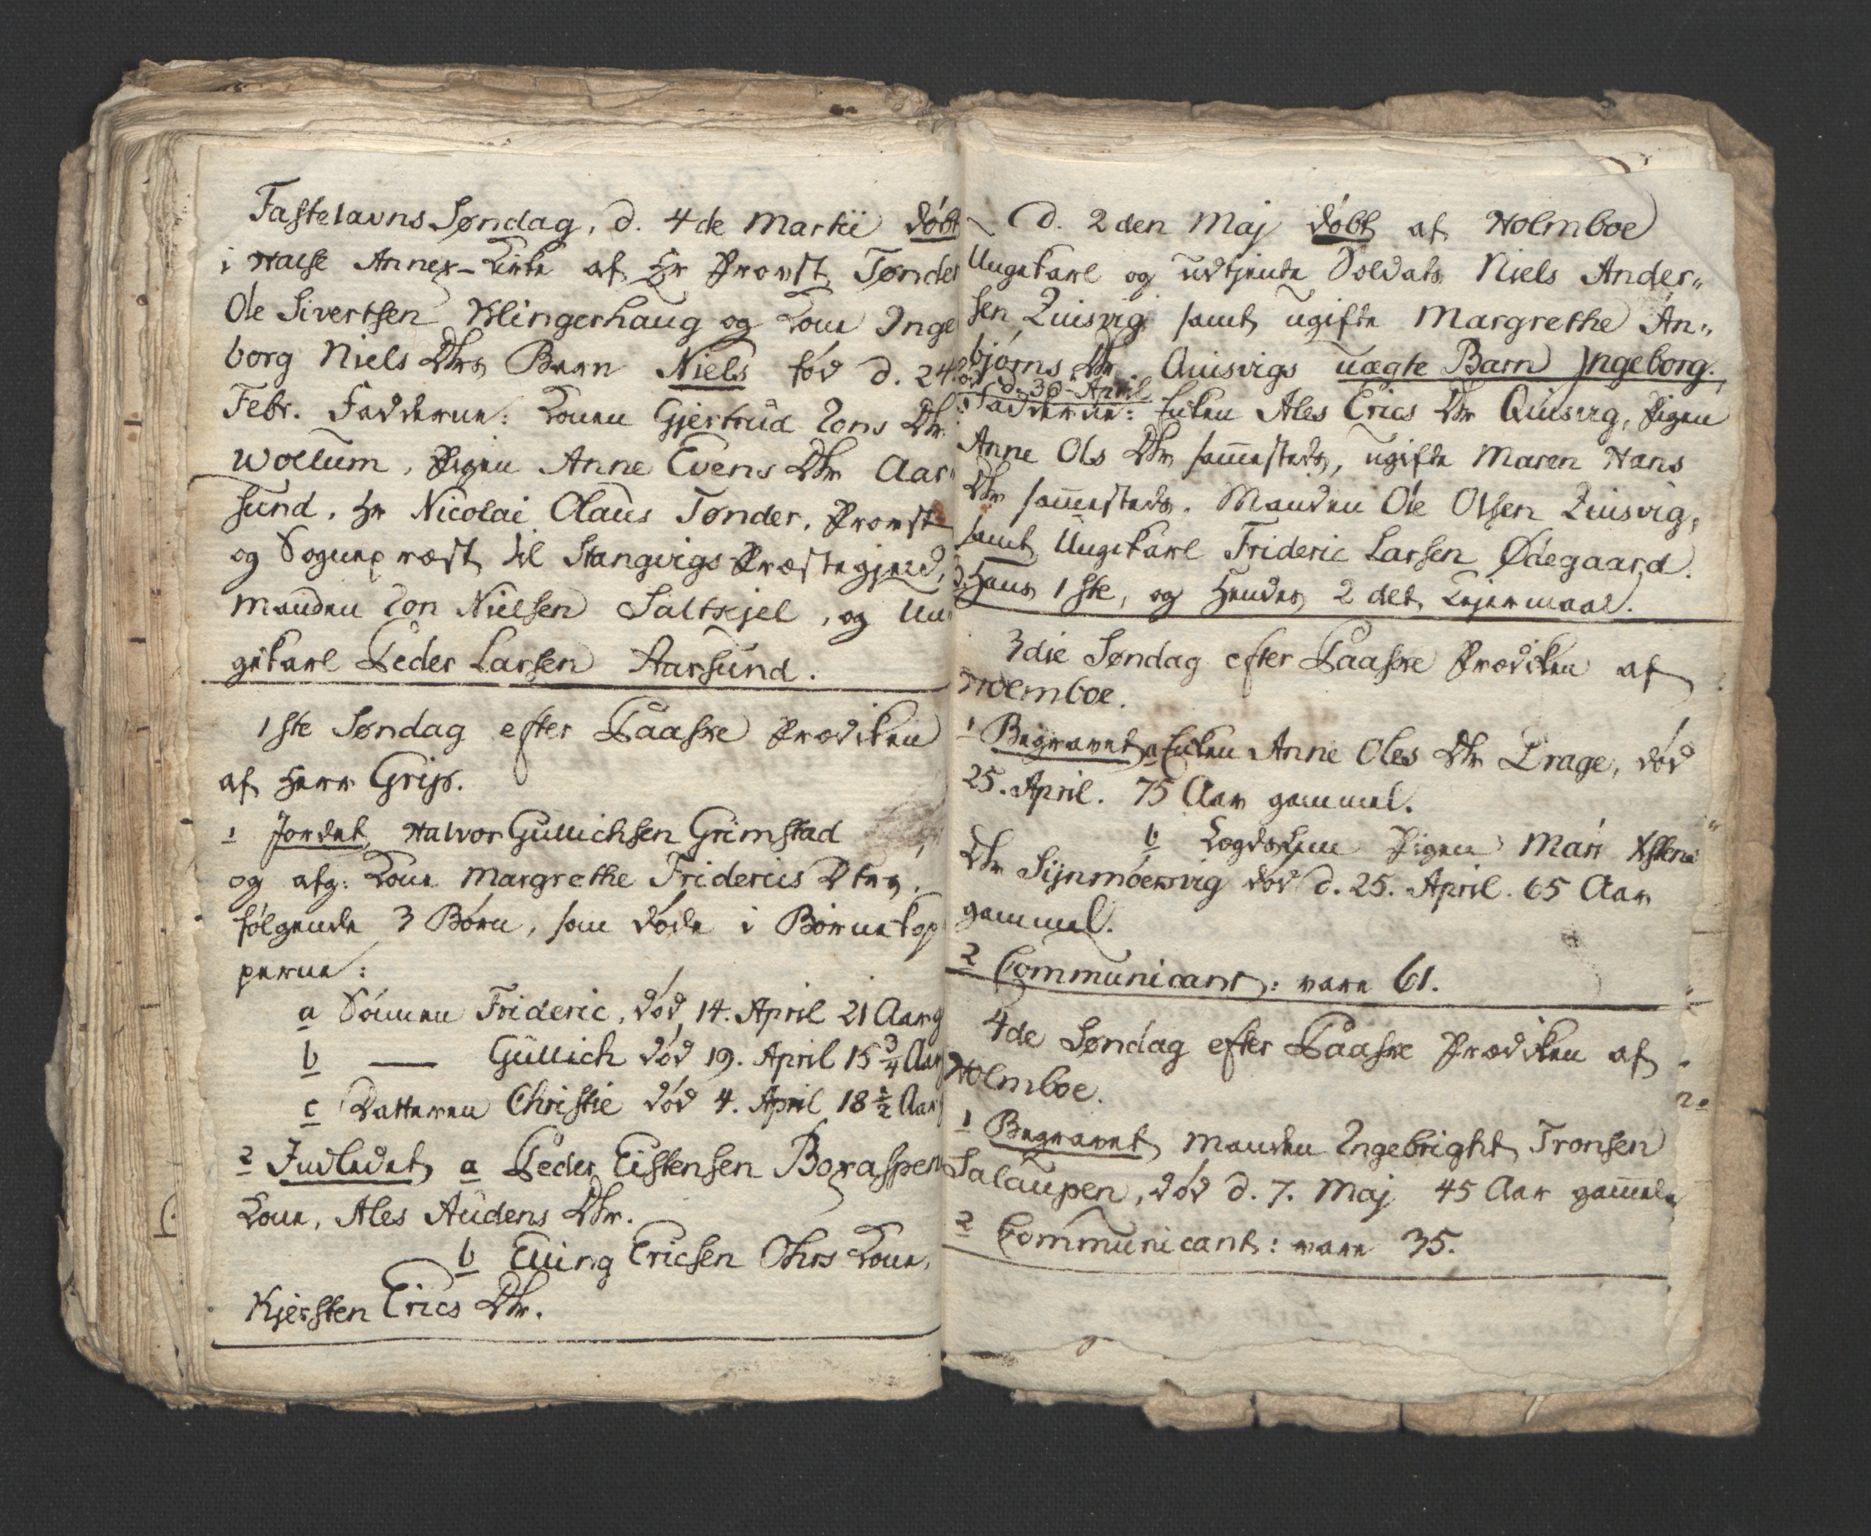 Fastelavns Søndag, d. 4de Martii døbt
i Halse Annex-Kirke af Hr Provst Tønder
Ole Sivertsen Klingerhaug og Kone Inge
borg Niels Dtrs Barn Niels fød d. 24
Febr. Fadderne: Konen Gjertrud Jons Dtr
Wollum, Pigen Anne Evens Dtr Aar
sund, Hr Nicolai Olaus Tønder, Provst
og Sognepræst til Stangvigs Præstegjeld,
Manden Jon Nielsen Saltkjel, og Un
gekarl Peder Larsen Aarsund.
1ste Søndag efter Paaske Prædiken
af Herr Grip.
1 Jordet, Halvor Gullichsen Grimstad
og afg: Kone Margrethe Friderics Dtrs,
følgende 3 Børn, som døde i Børnekop
perne:
a Sønnen Frideric, død 14. April 21 Aar g
b — Gullich død 19. April 15 3/4 Aar
c Datteren Christie død 4. April 18 1/2 Aar
2 Indledet a Peder Eistensen Boxaspen
Kone, Ales Audens Dtr.
b Elling Ericsen Kone,
Kjersten Erics Dtr.
d. 2den Maj døbt af Holmboe
Ungekarl og udtjente Soldats Niels Ander-
sen Quisvig samt ugifte Margrethe An-
bjørns Dtr. Quisvigs uægte Barn Ingeborg.
d. 30 April
Fadderne: Enken Ales Erics Dtr Quisvig, Pigen
Anne Ols Dtr sammesteds, ugifte Maren Hans
Dtr sammesteds. Manden Ole Olsen Quisvig,
samt Ungekarl Frideric Larsen Ødegaard.
Hans 1ste, og Hendes 2det Lejermaal.
3die Søndag efter Paaske Prædiken af
Holmboe.
1 Begravet a Enken Anne Oles Dtr Drage, død
25. April. 75 Aar gammel.
b Logdslem Pigen Mari
Dtr død d. 25. April. 65 Aar
gammel.
2 Communicant: vare 61.
4de Søndag efter Paaske Prædiken af
Holmboe.
1 Begravet Manden Ingebright Tronsen
Talaupen, død d. 7. Maj 45 Aar gammel
2 Communicant: vare 35.